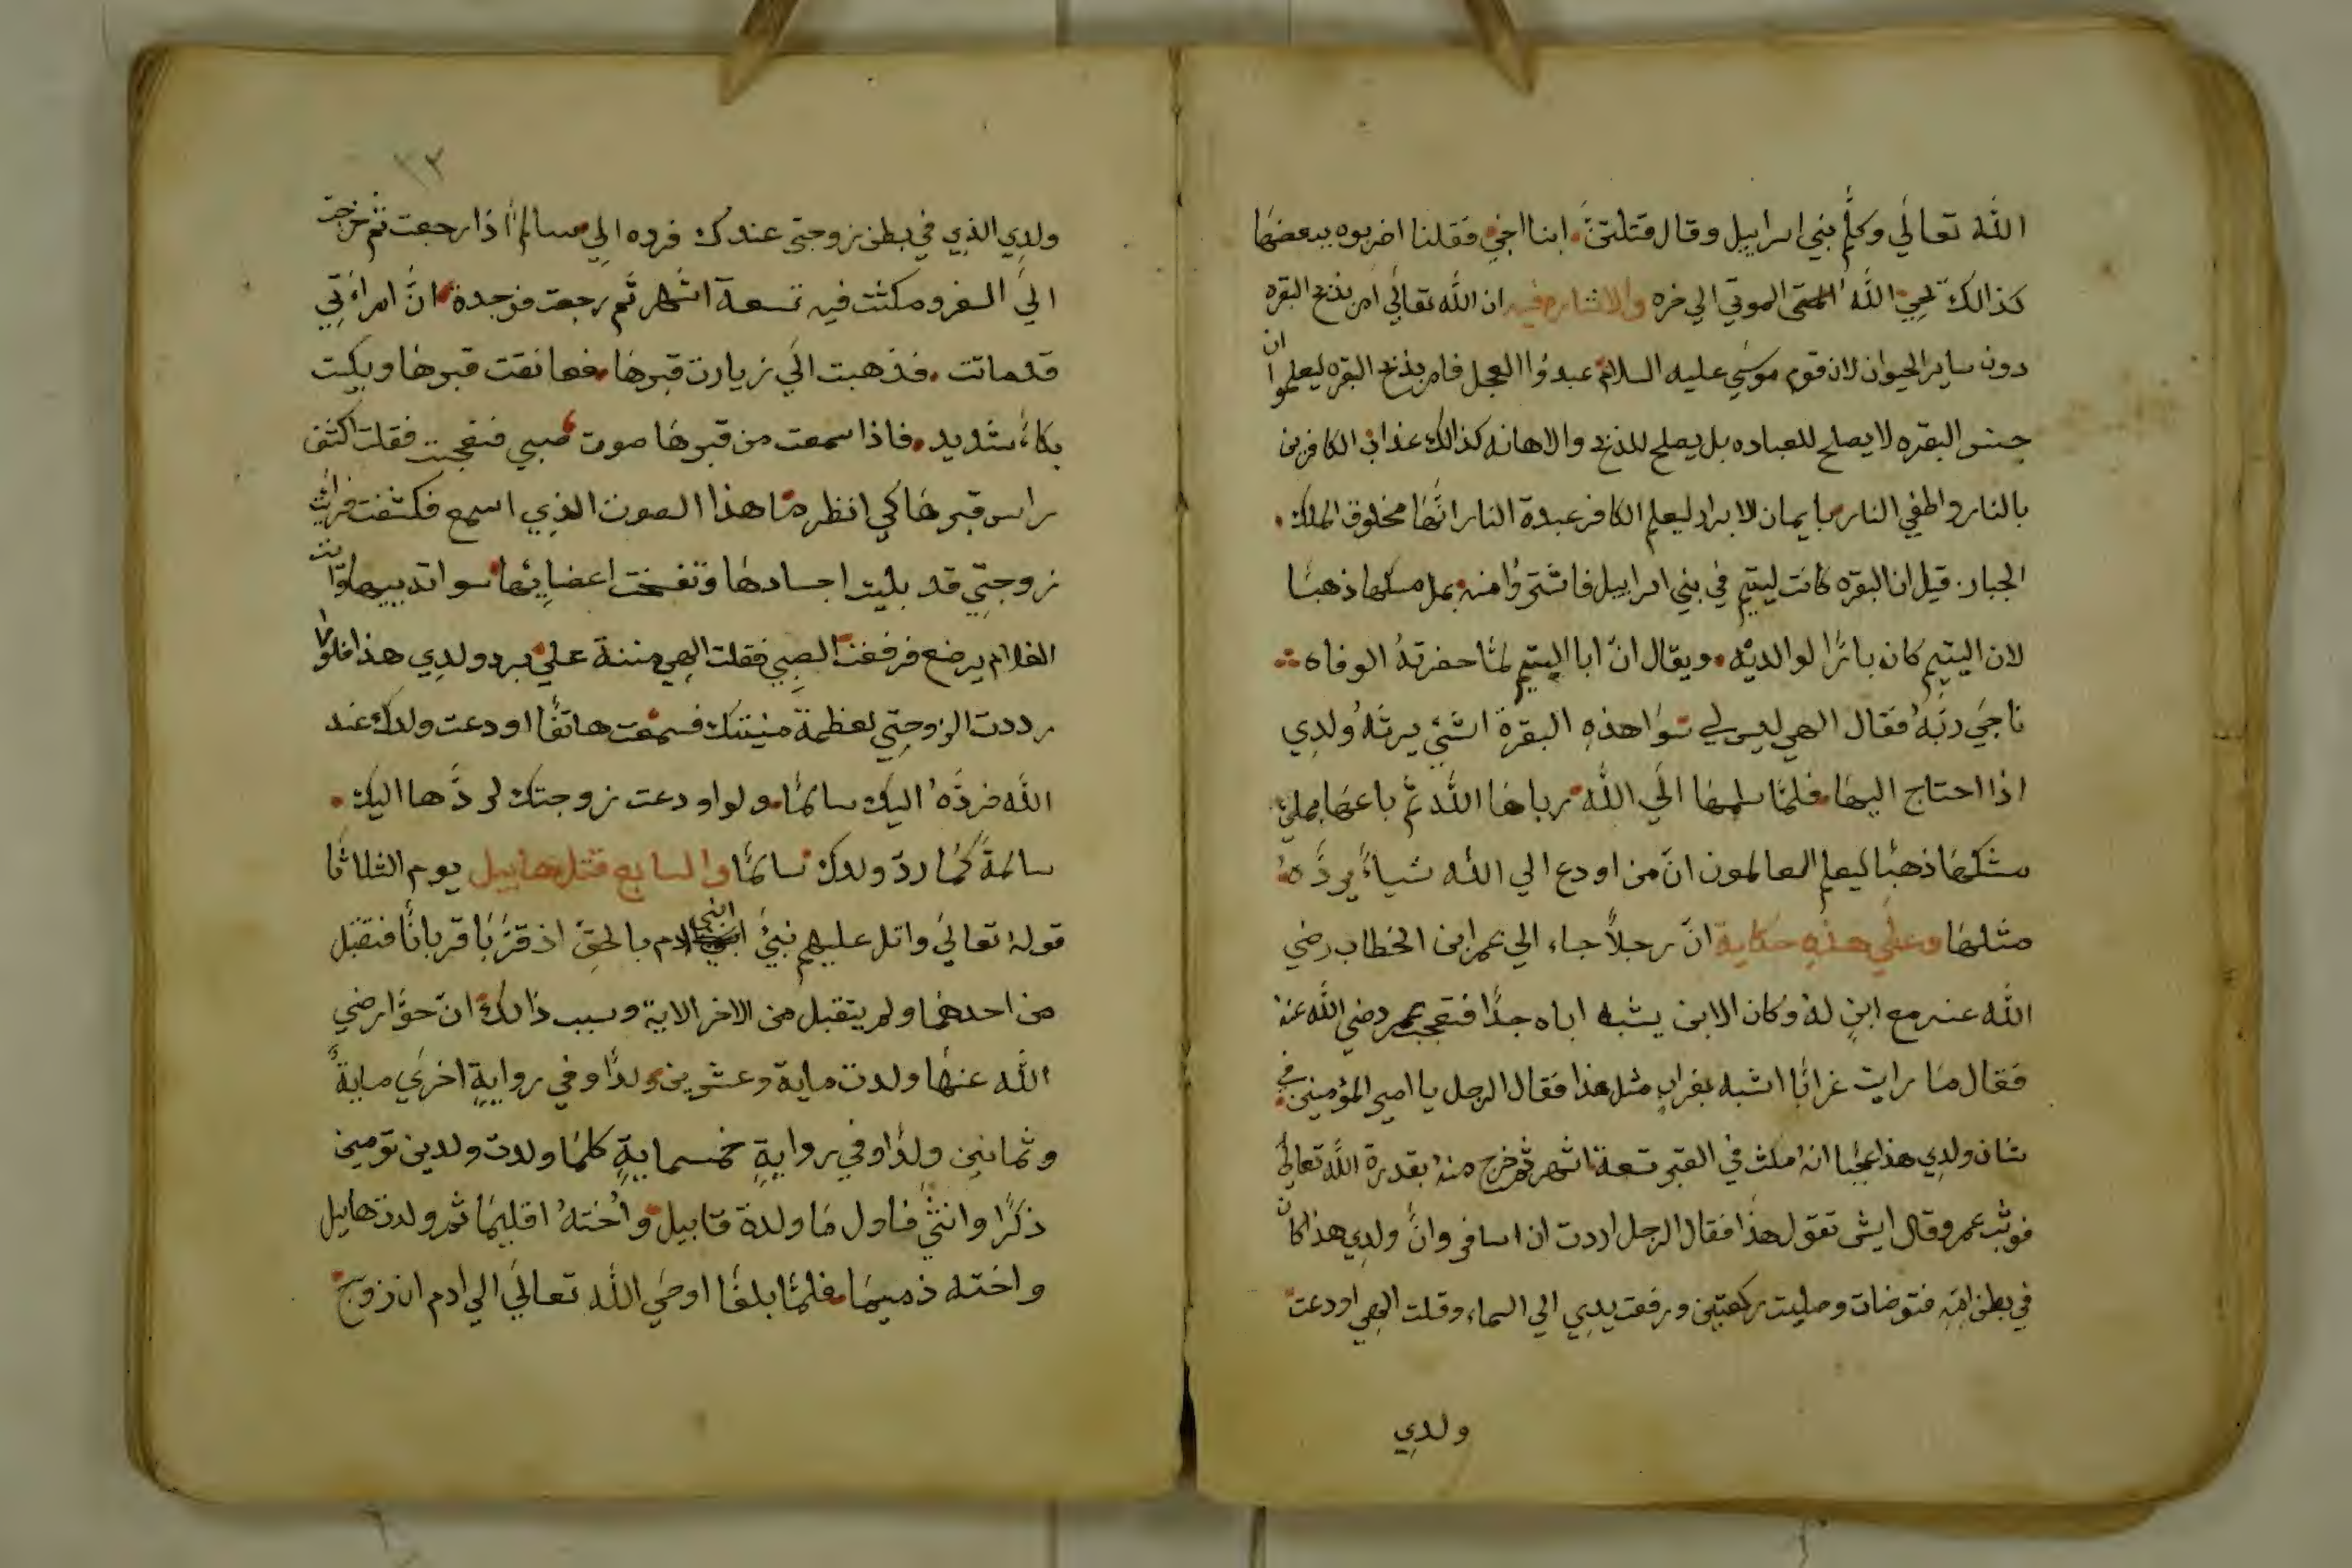 الله تعالي وكلم بني اسرابيل وقال قتلتني ابنا اخي فقلنا اضربوه ببعضها
كذالك يحيي الله الموتي الي خره والاشاره فيه ان الله تعالي امر بذبح البقره
دون ساير الحيوان لان قوم موسي عليه السلام عبدوا العجل فامر بذبح البقره ليعلموا ان
جنس البقره لا يصلح للعباده بل يصلح للذبح والاهانه كذالك عذاب الكافرين
بالنار واطفي النار بايمان الابراد ليعلم الكافر عبدة النار انها مخلوق الملك
الجبار قيل ان البقره كانت ليتيم في بني اسرابيل فاشتروا منه بمل مسكها ذهبا
لان اليتيم كان بارا لوالديه ويقال ان ابا اليتيم لما حضرته الوفاه
ناجي ربه فقال الهي ليس لي سوا هذه البقرة الشي يرثه ولدي
اذا احتاج اليها فلما سلمها الي الله رباها الله ثم باعها بملئ
مشكها ذهبا ليعلم العالمون ان من اودع الي الله شياء يرده
مثلها وعلي هذه حكاية ان رجلا جاء الي عمر ابن الخطاب رضي
الله عنه مع ابن له وكان الابن يشبه اباه جدا فتعجب عمر رضي الله عنه
فقال ما رايت غرابا اشبه بغراب مثل هذا فقال الرجل يا امير المؤمنين في
شان ولدي هذا عجبا انه مكث في القبر تسعة اشهر ثم خرج منه بقدرة الله تعالي
فوثب عمر وقال ايش تقول هذا فقال الرجل اردت ان اسافر وان ولدي هذا كان
في بطن امه فتوضات وصليت ركعتين ورفعت يدي الي السماء وقلت الهي اودعت
ولدي
٢٣
ولدي الذي في بطن زوجتي عندك فرده الي سالما اذا رجعت ثم خرجت
الي السفر ومكثت فيه تسعة اشهر ثم رجعت فوجدة ان امراءتي
قد ماتت فذهبت الي زيارت قبرها فعانقت قبرها وبكيت
بكاء شديد فاذا سمعت من قبرها صوت صبي فتعجبت فقلت اكشف
راس قبرها كي انظر ما هذا الصوت الذي اسمع فكشفت فرايت
زوجتي قد بليت اجسادها وتفسخت اعضايها سوا ثدييها ورايت
الغلام يرضع فرفعت الصبي فقلت الهي مننة علي برد ولدي هذا فلو
رددت الزوجتي لعظمة منيتك فسمعت هاتفا اودعت ولدك عند
الله فرده اليك سالما ولو اودعت زوجتك لردها اليك
سالمة كما رد ولدك سالما والسابع قتل هابيل يوم الثلاثا
قوله تعالي واتل عليهم نبئ ابني ادم بالحق اذ قربا قربانا فتقبل
من احدهما ولم يتقبل من الاخر الاية وسبب ذالك ان حوا رضي
الله عنها ولدت ماية وعشرين ولدا وفي رواية اخري ماية
وثمانين ولدا وفي رواية خمسماية كلما ولدت ولدين تومين
ذكرا وانثي فاول ما ولدة قابيل واخته اقليما ثم ولدت هابيل
واخته ذميما فلما بلغا اوحي الله تعالي الي ادم ان زوج